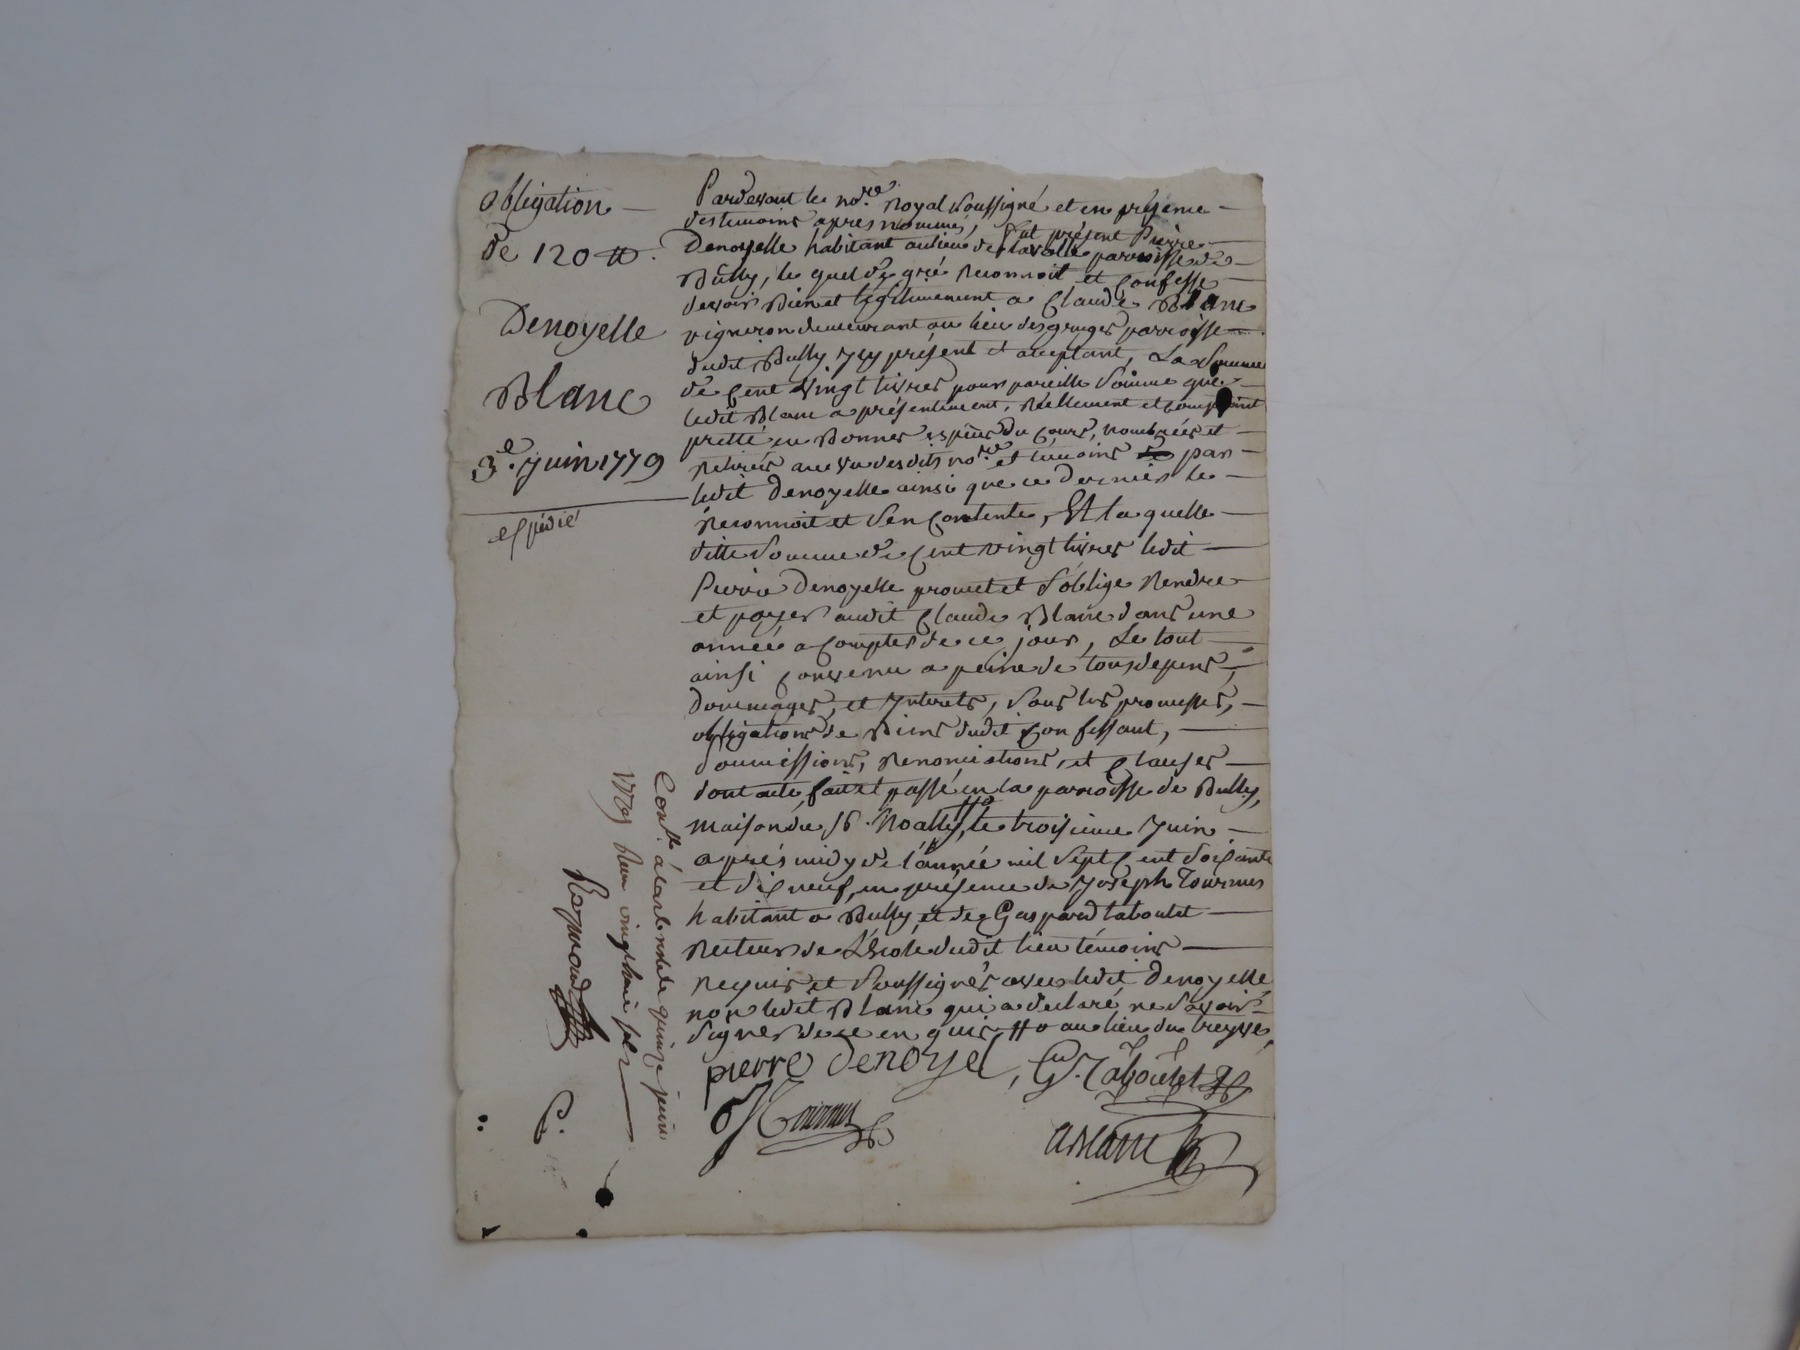 obligation
de 120 ₶.
Denoyelle
Blanc
3.e juin 1779
espédié
Pardevant le no.re Royal soussigné et en présence
des temoins apres nommés, fut présent Pierre
Denoyelle habitant au lieu de parroisse de
Bully, le quel de gré reconnoit et confesse
devoir bien et légitimement a Claude Blanc
vigneron demeurant au lieu des granges parroisse
dudit Bully icy présent et acceptant, La somme
de cent vingt livres pour pareille somme que
ledit Blanc a présentement, réellement et comptant
pretté en bonnes espèces du cours, nombrées et
retirées au vu desdits no.re et témoins par
ledit Denoyelle ainsi que ce dernier le
reconnoit et s'en contente, Et la quelle
ditte somme de cent vingt livres ledit
Pierre Denoyelle promet et s'oblige rendre
et payer audit Claude Blanc dans une
année a compter de ce jour, Le tout
ainsi convenu a peine de tous depens,
dommages, et interets, sous les promesses,
obligations de biens dudit confessant,
soumissions, renonciations, et clauses
dont acte, fait et passé en la parroisse de Bully,
maison du s.r Noally, le troisieme juin
après midy de l'année mil sept cent soixante
et dix neuf, en présence de Joseph Tournus
habitant a Bully, et de Gaspard taboulet
Recteur de L'école dudit lieu témoins
requis et soussignés avec ledit Denoyelle
non ledit Blanc qui a declaré ne savoir
signer de ce enquis au lieu du treyve,
pierre denoyel, G. Taboulet
Tournus
Cont.lé à Larbresle le quinze juin
1779 Reçu vingt un sols
Raymond
P.